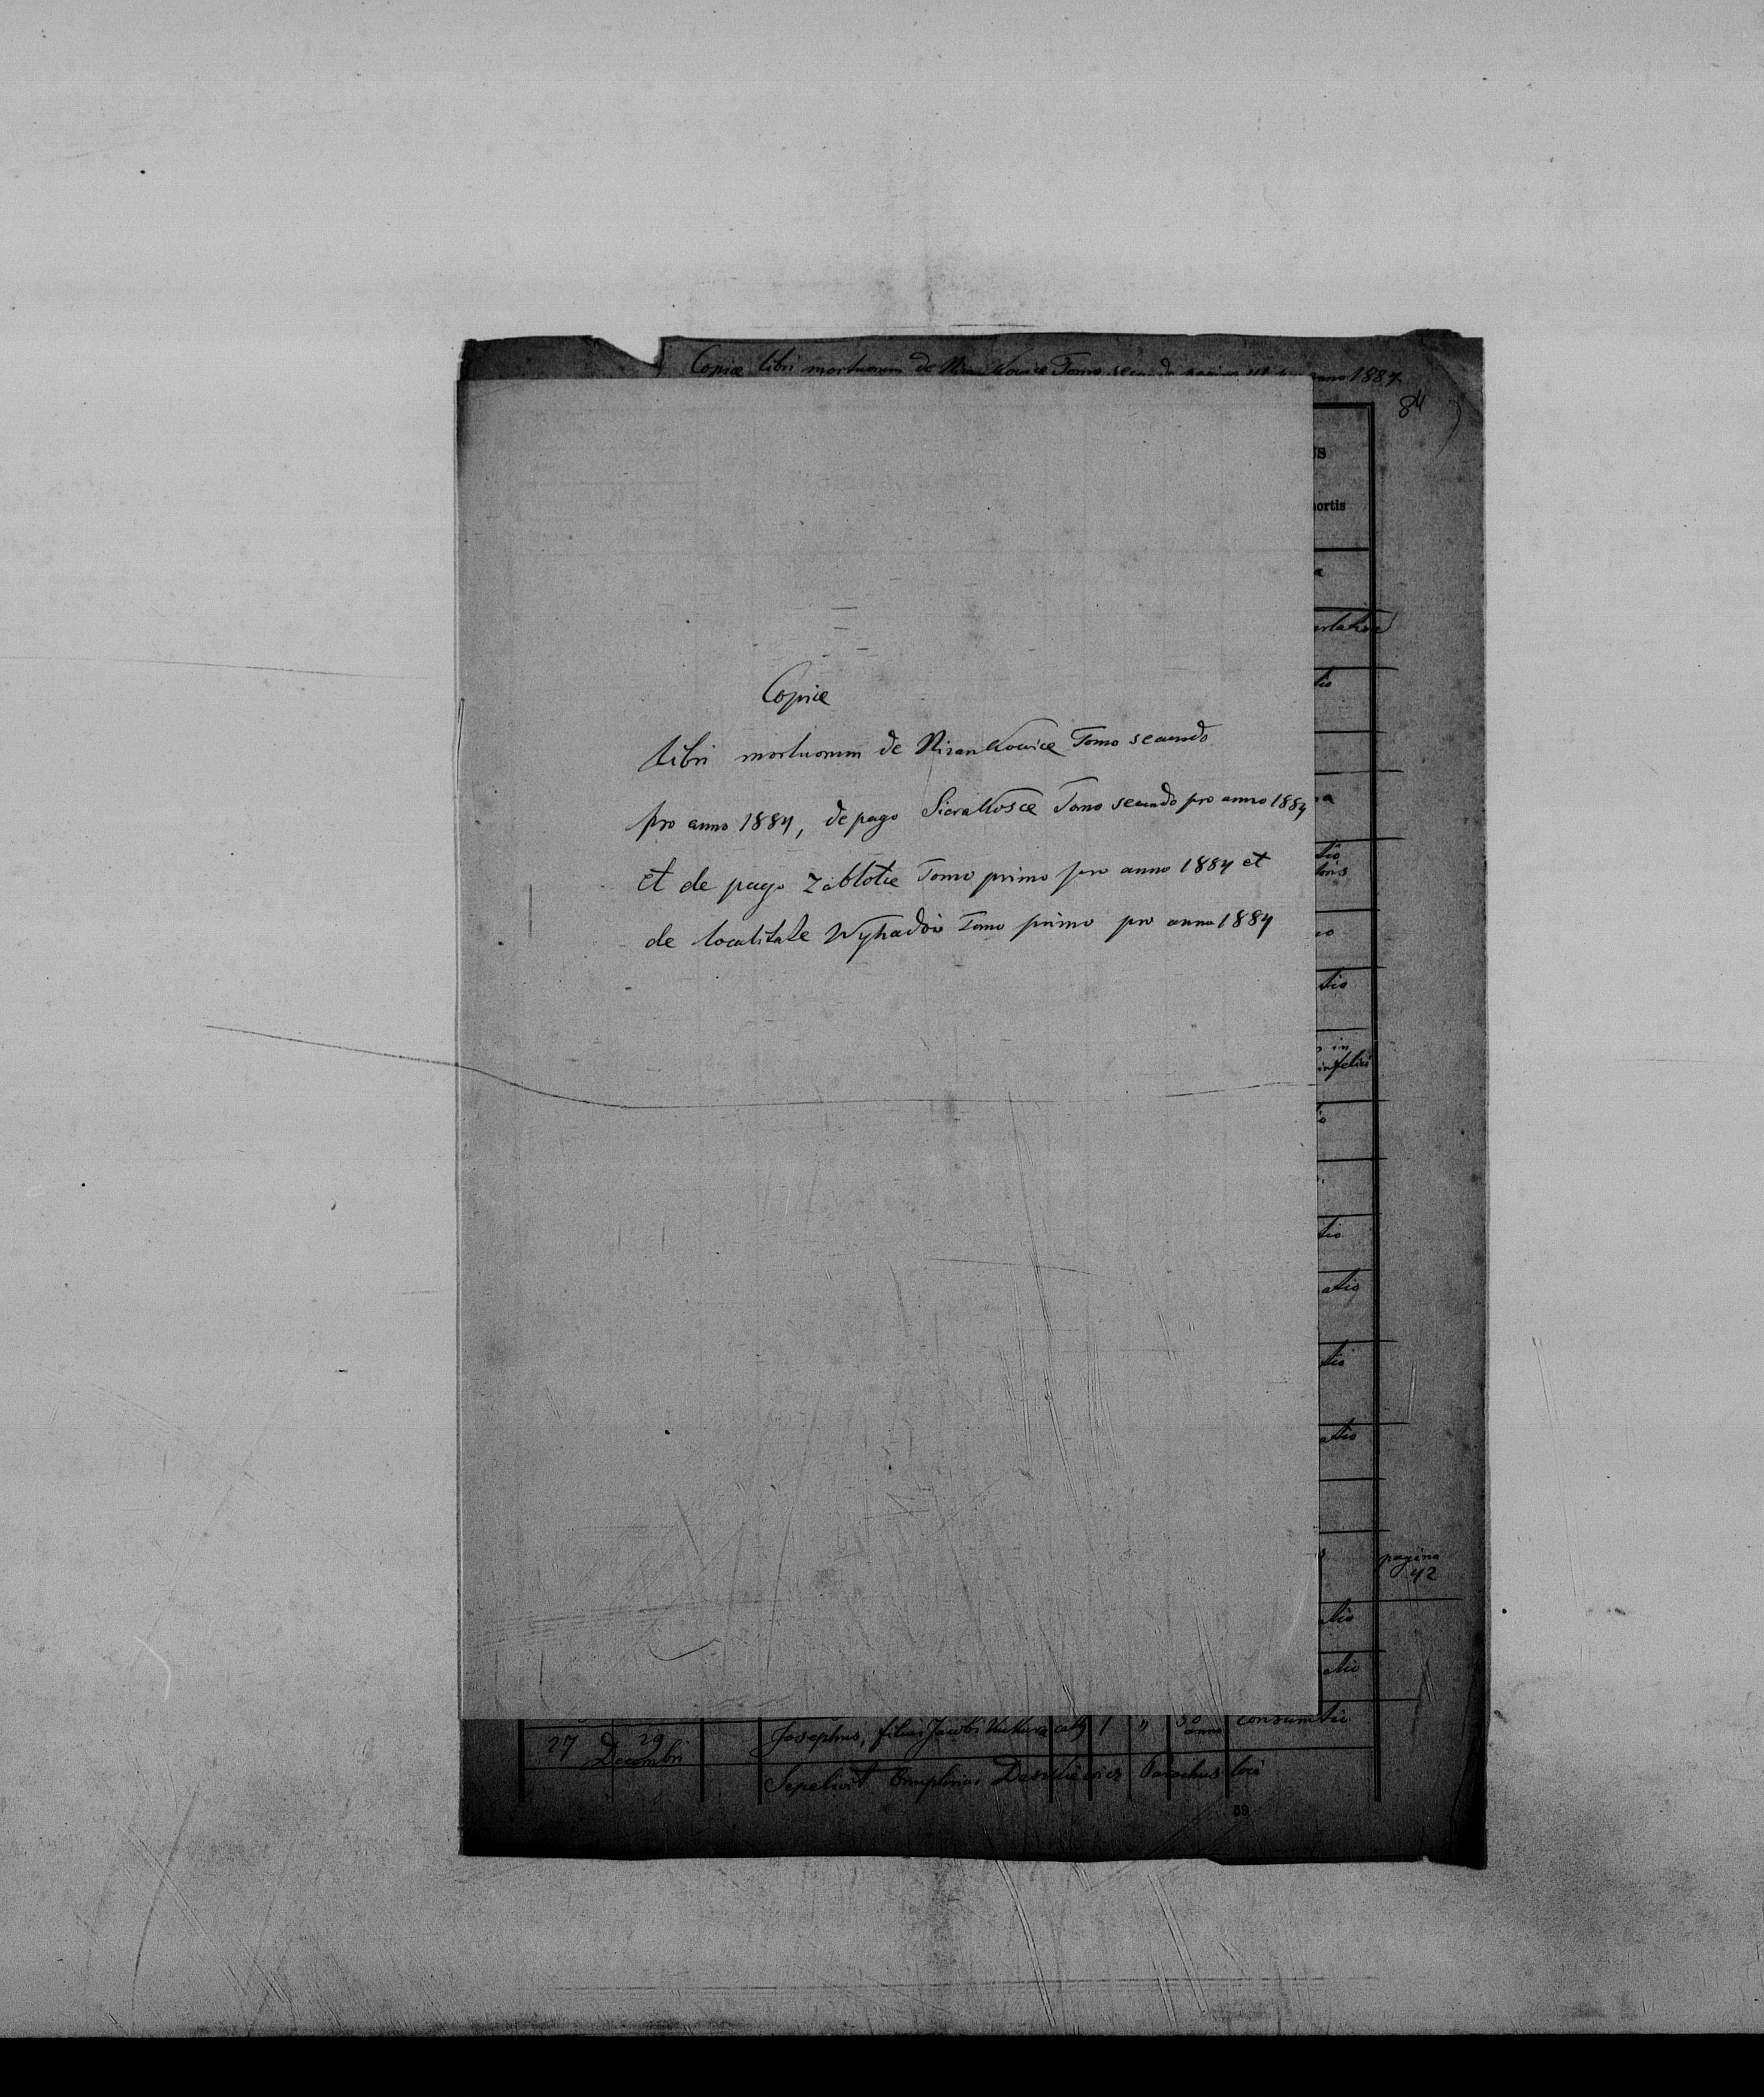 Copiæ libri mortuorum de Nizankowice Tomo secundo pagina anno 1884
84
US
ortis
a
tio
a
tio
tio
in
infelici
tio
atio
tio
atio
pagina
42
tio
atio
Copiæ
Libri mortuorum de Nizankowice Tomo secundo
pro anno 1884, de pago Sierakosce Tomo secundo pro anno 1884
et de pago Zabłotce Tomo primo pro anno 1884 et
de localitate Wyhadów Tomo primo pro anno 1884
27 29 Decembri Josephus, filius Jacobi Kukura cath 1 " 50 anno consumtio
Sepelivit Daszkiewicz Parochus loci
59